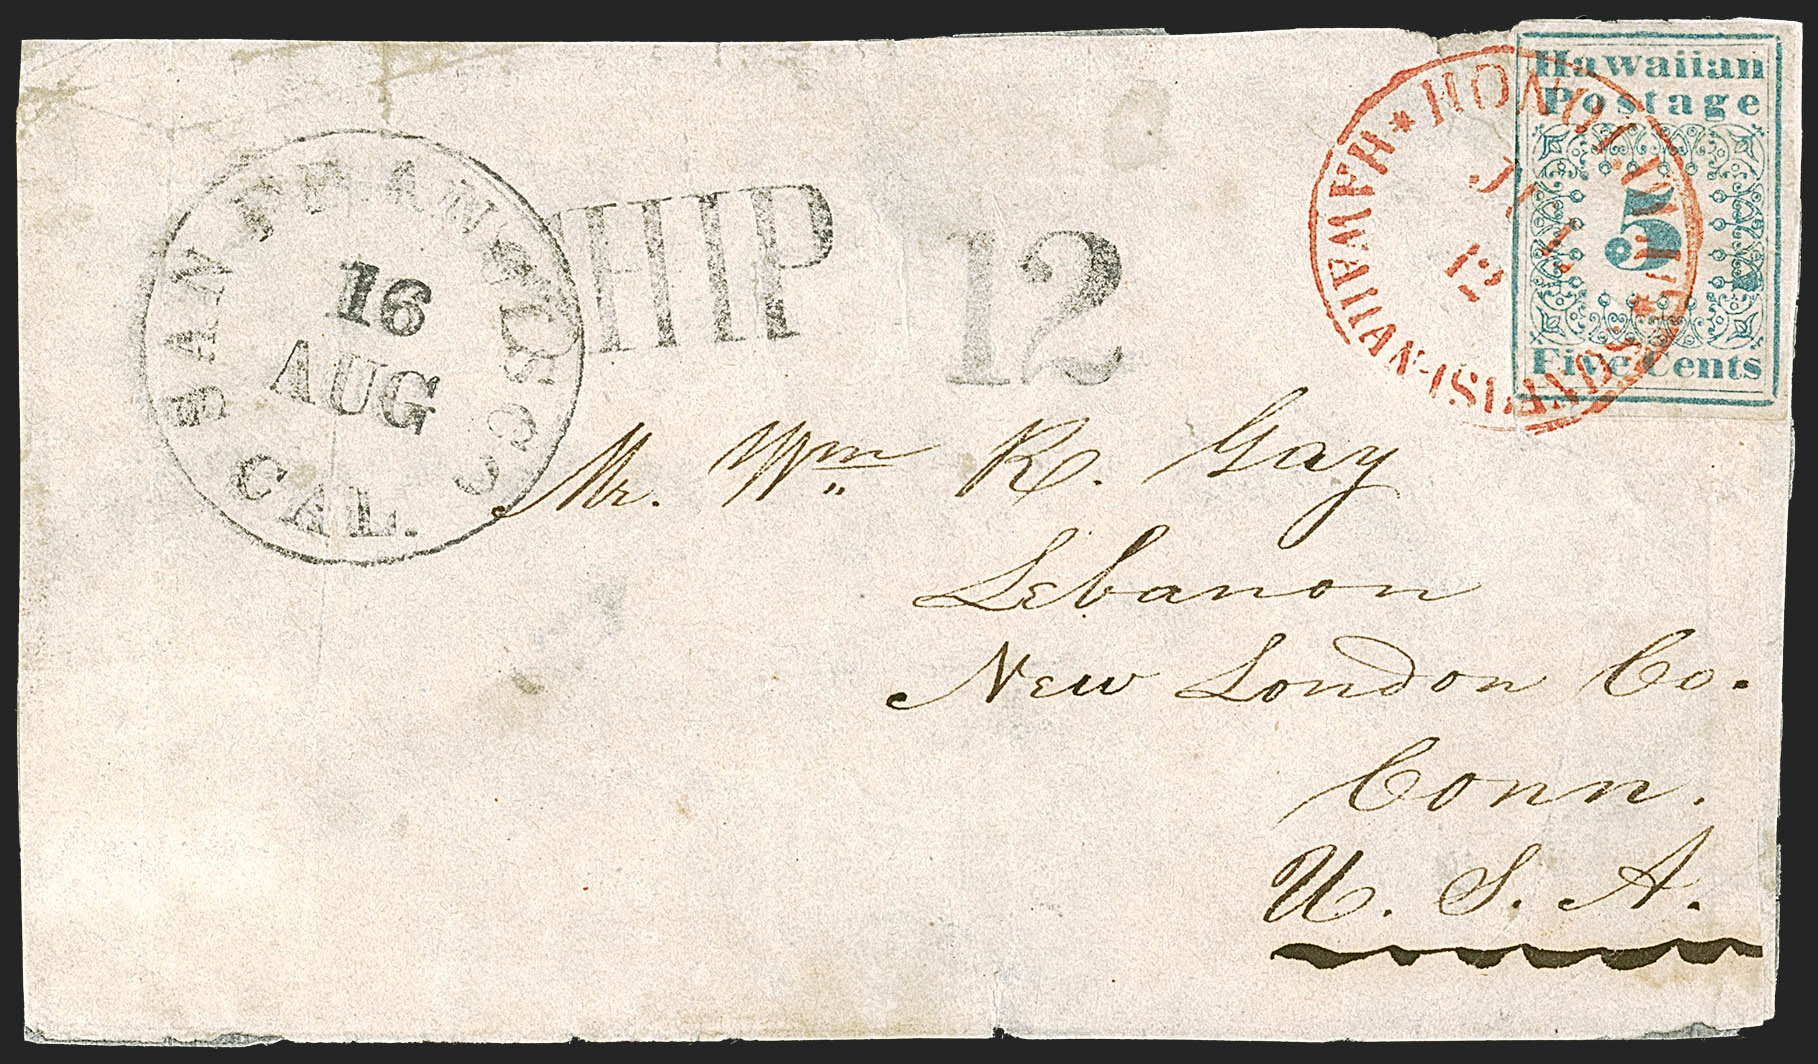 SAN FRANCISCO
16
AUG
CAL.
SHIP
12
* HONOLULU *
JUL
12
HAWAIIAN-ISLANDS
Hawaiian
Postage
5
Five Cents
Mr. Wm R. Gay
Lebanon
New London Co.
Conn.
U. S. A.